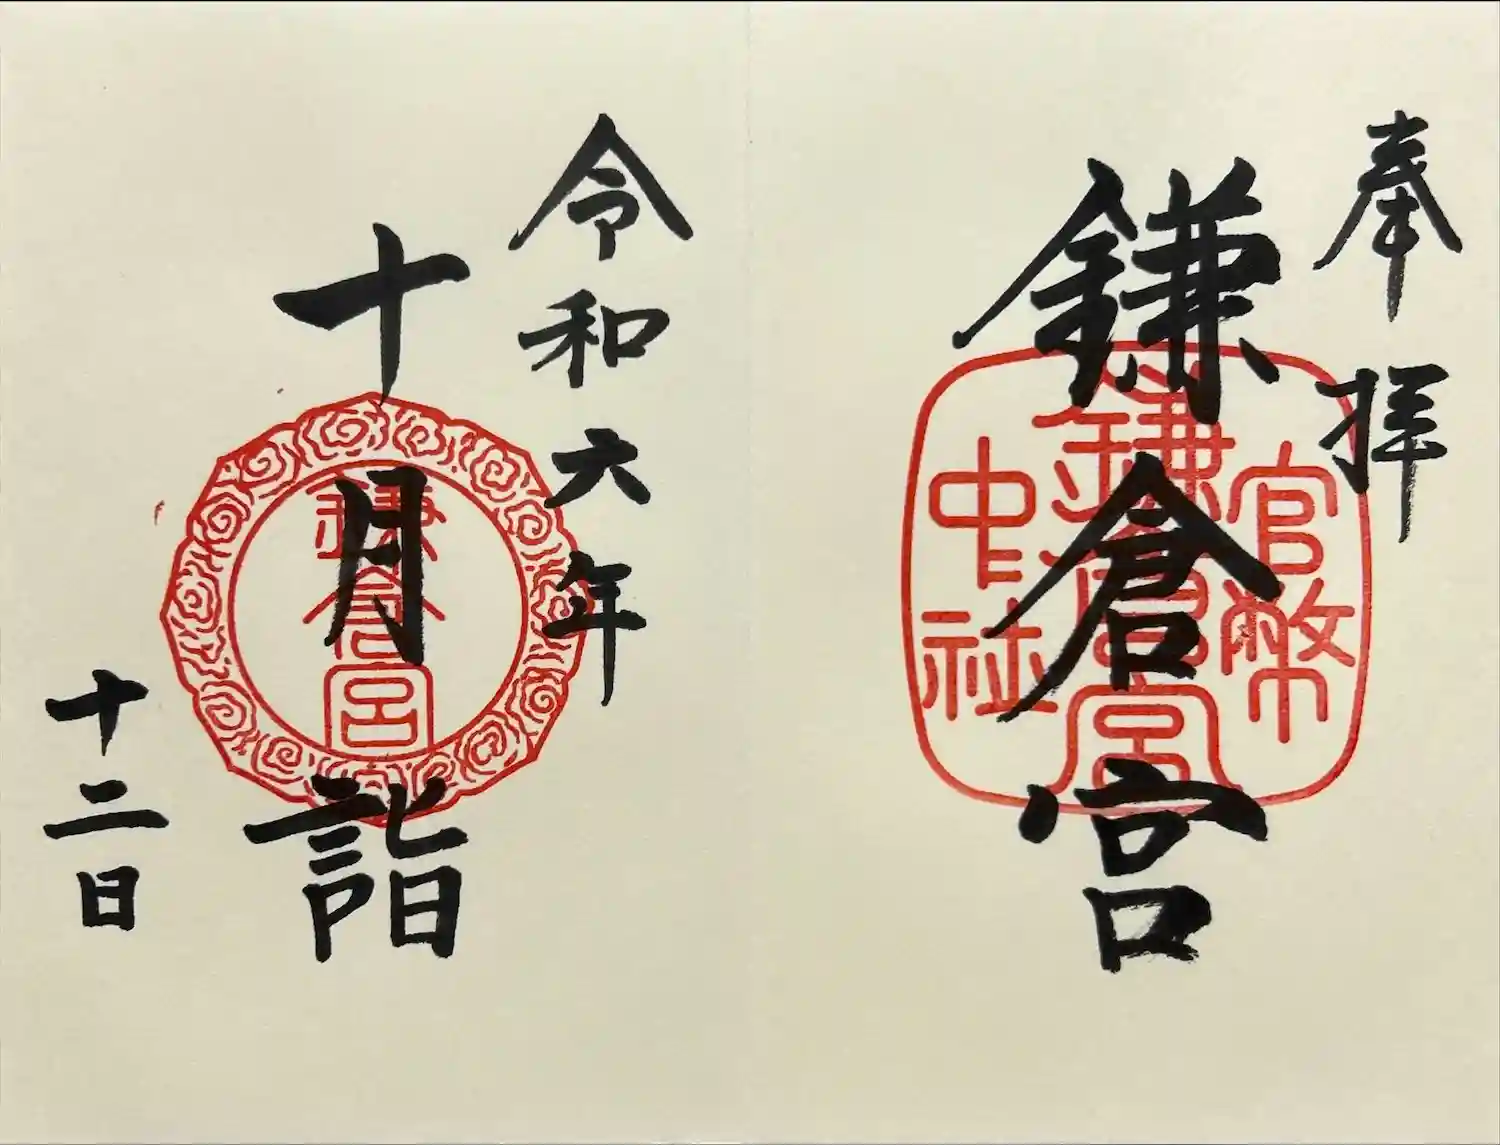 奉拝
鎌倉宮
官幣
鎌倉宮
中社
令和六年
十月詣
鎌倉宮
十二日